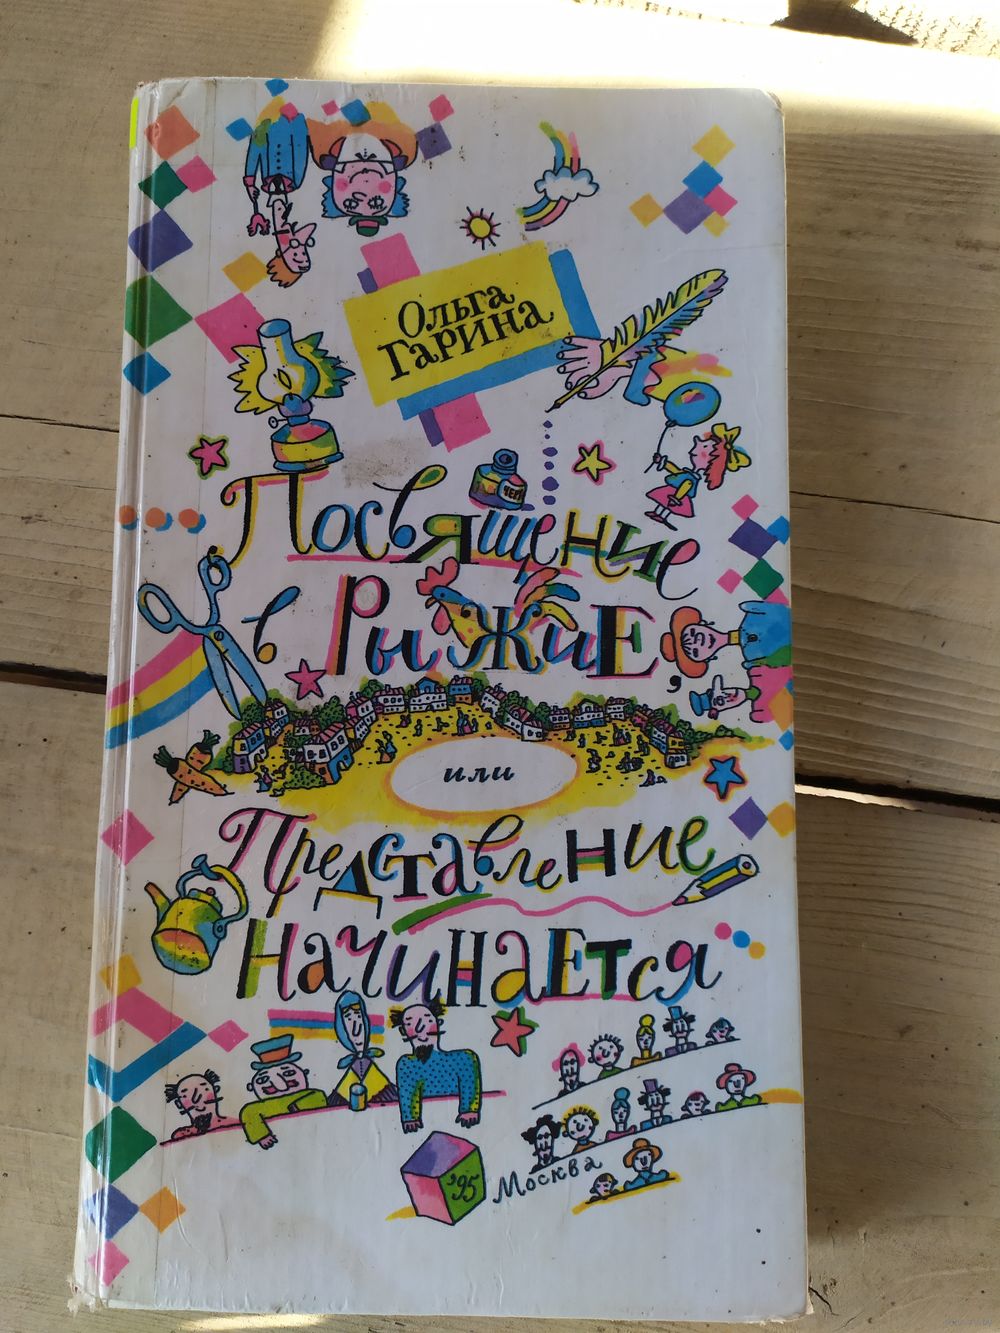 Ольга
Гарина
Посвящение
в Рыжие,
или
Представление
начинается
'95
Москва